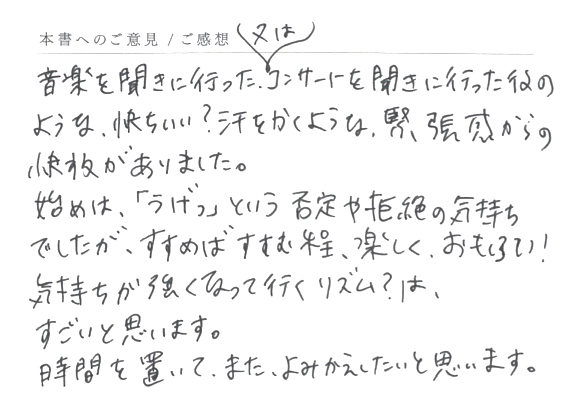 本書へのご意見 / ご感想 (又は)
音楽を聞きに行った、コンサートを聞きに行った後の
ような、快ちいい?汗をかくような、緊張感からの
快哉がありました。
始めは、「うげっ」という否定や拒絶の気持ち
でしたが、すすめばすすむ程、楽しく、おもしろい!
気持ちが強くなって行くリズム?は、
すごいと思います。
時間を置いて、また、よみかえしたいと思います。